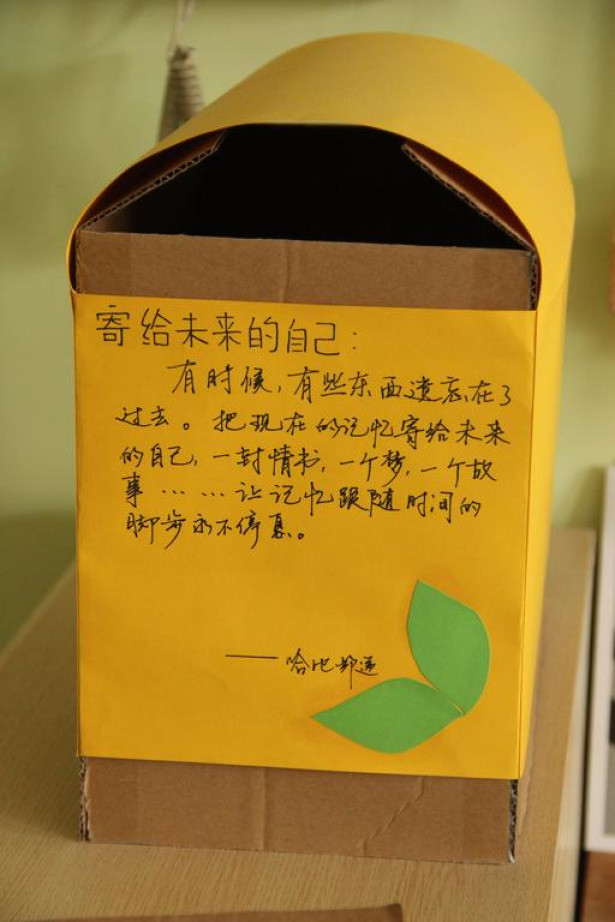 寄给未来的自己：
有时候，有些东西遗忘在了
过去。把现在的记忆寄给未来
的自己，一封情书，一个梦，一个故
事……让记忆跟随时间的
脚步永不停息。
——哈比邮递